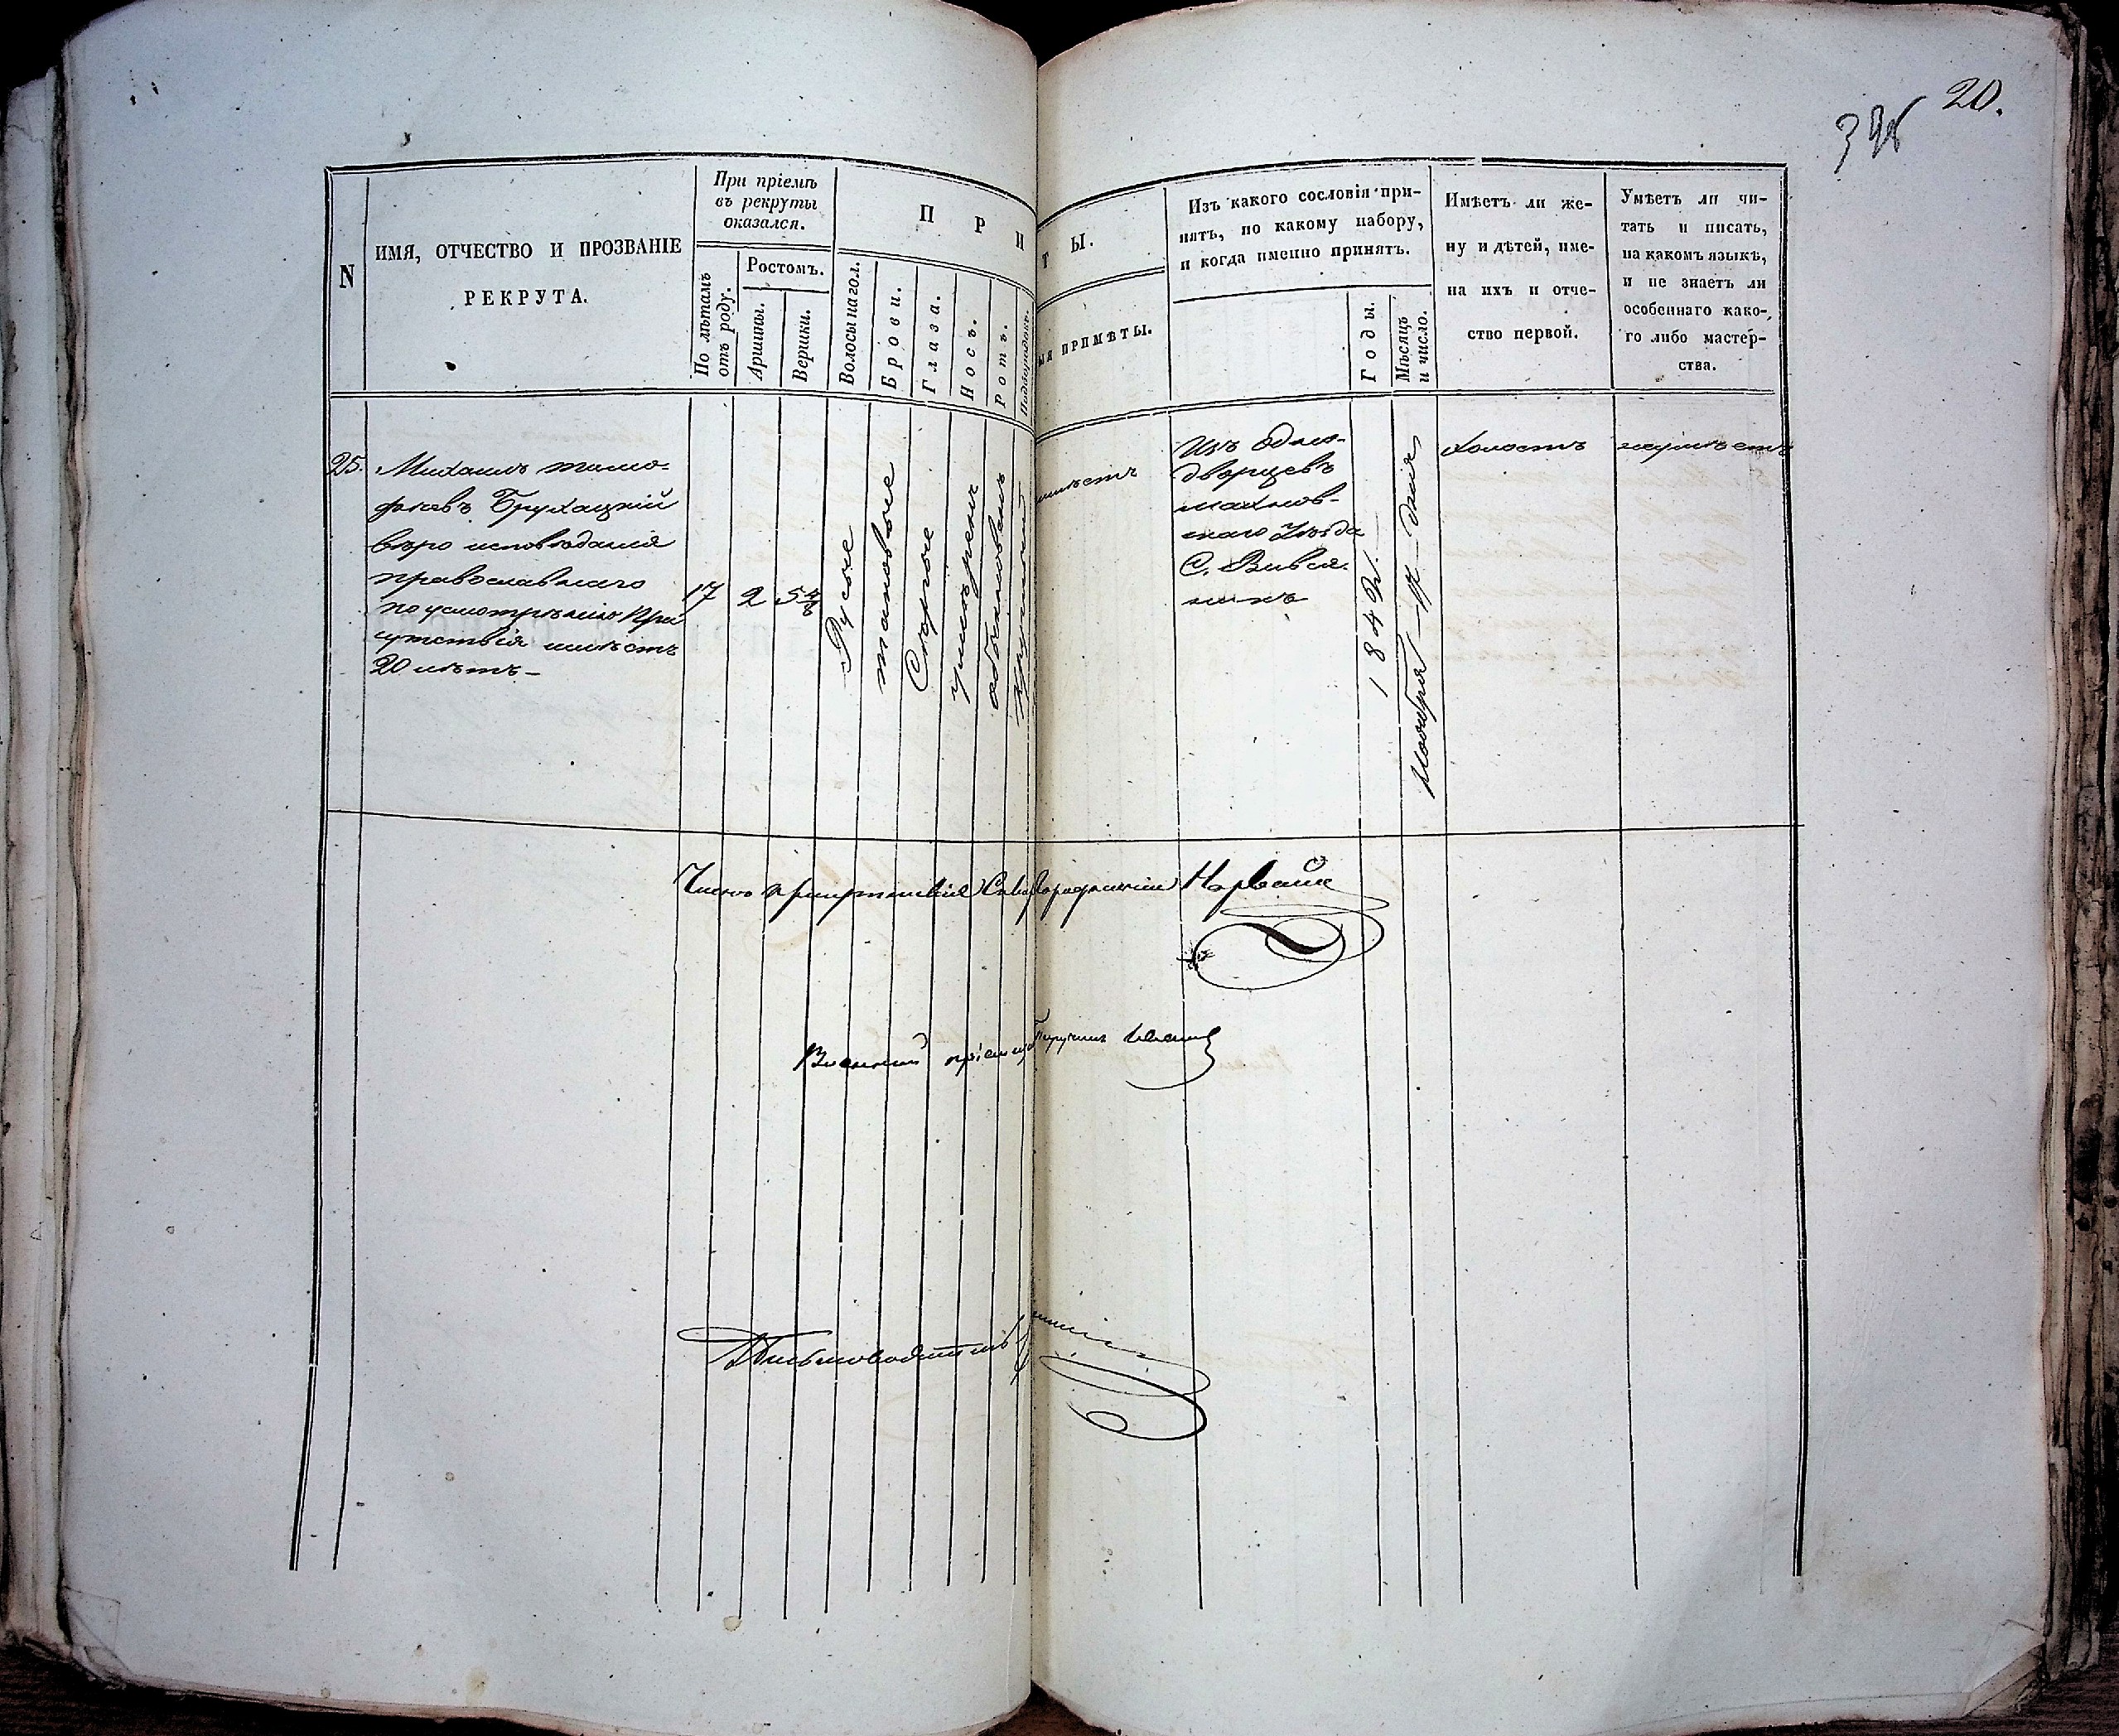 20.
N
ИМЯ, ОТЧЕСТВО И ПРОЗВАНІЕ
РЕКРУТА.
При пріемѣ
въ рекруты
оказался.
По лѣтамъ
отъ роду.
Ростомъ.
Аршины.
Вершки.
П Р И
Волосы на гол.
Брови.
Глаза.
Носъ.
Ротъ.
Подбородокъ.
Т Ы.
ЫЯ ПРИМѢТЫ.
Изъ какого сословія при-
нятъ, по какому набору,
и когда именно принятъ.
Годы.
Мѣсяцъ
и число.
Имѣетъ ли же-
ну и дѣтей, име-
на ихъ и отче-
ство первой.
Умѣетъ ли чи-
тать и писать,
на какомъ языкѣ,
и не знаетъ ли
особеннаго како-
го либо мастер-
ства.
25.
Михаилъ Тимо-
феевъ Брухацкій
вѣро исповѣданія
православнаго
по усмотрѣнію При
сутствія имѣетъ
20 лѣтъ-
17
2
5 4/8
Русые
таковые
Сѣрые
умѣренъ
обыкновенъ
круглый
имѣетъ
Изъ Одно-
дворцевъ
махнов-
скаго Уѣзда
С. Вився-
никъ
184
Ноября 17 дня
холостъ
неумѣетъ
Членъ присутствія
Военный пріемщ
Поручикъ
Письмоводитель